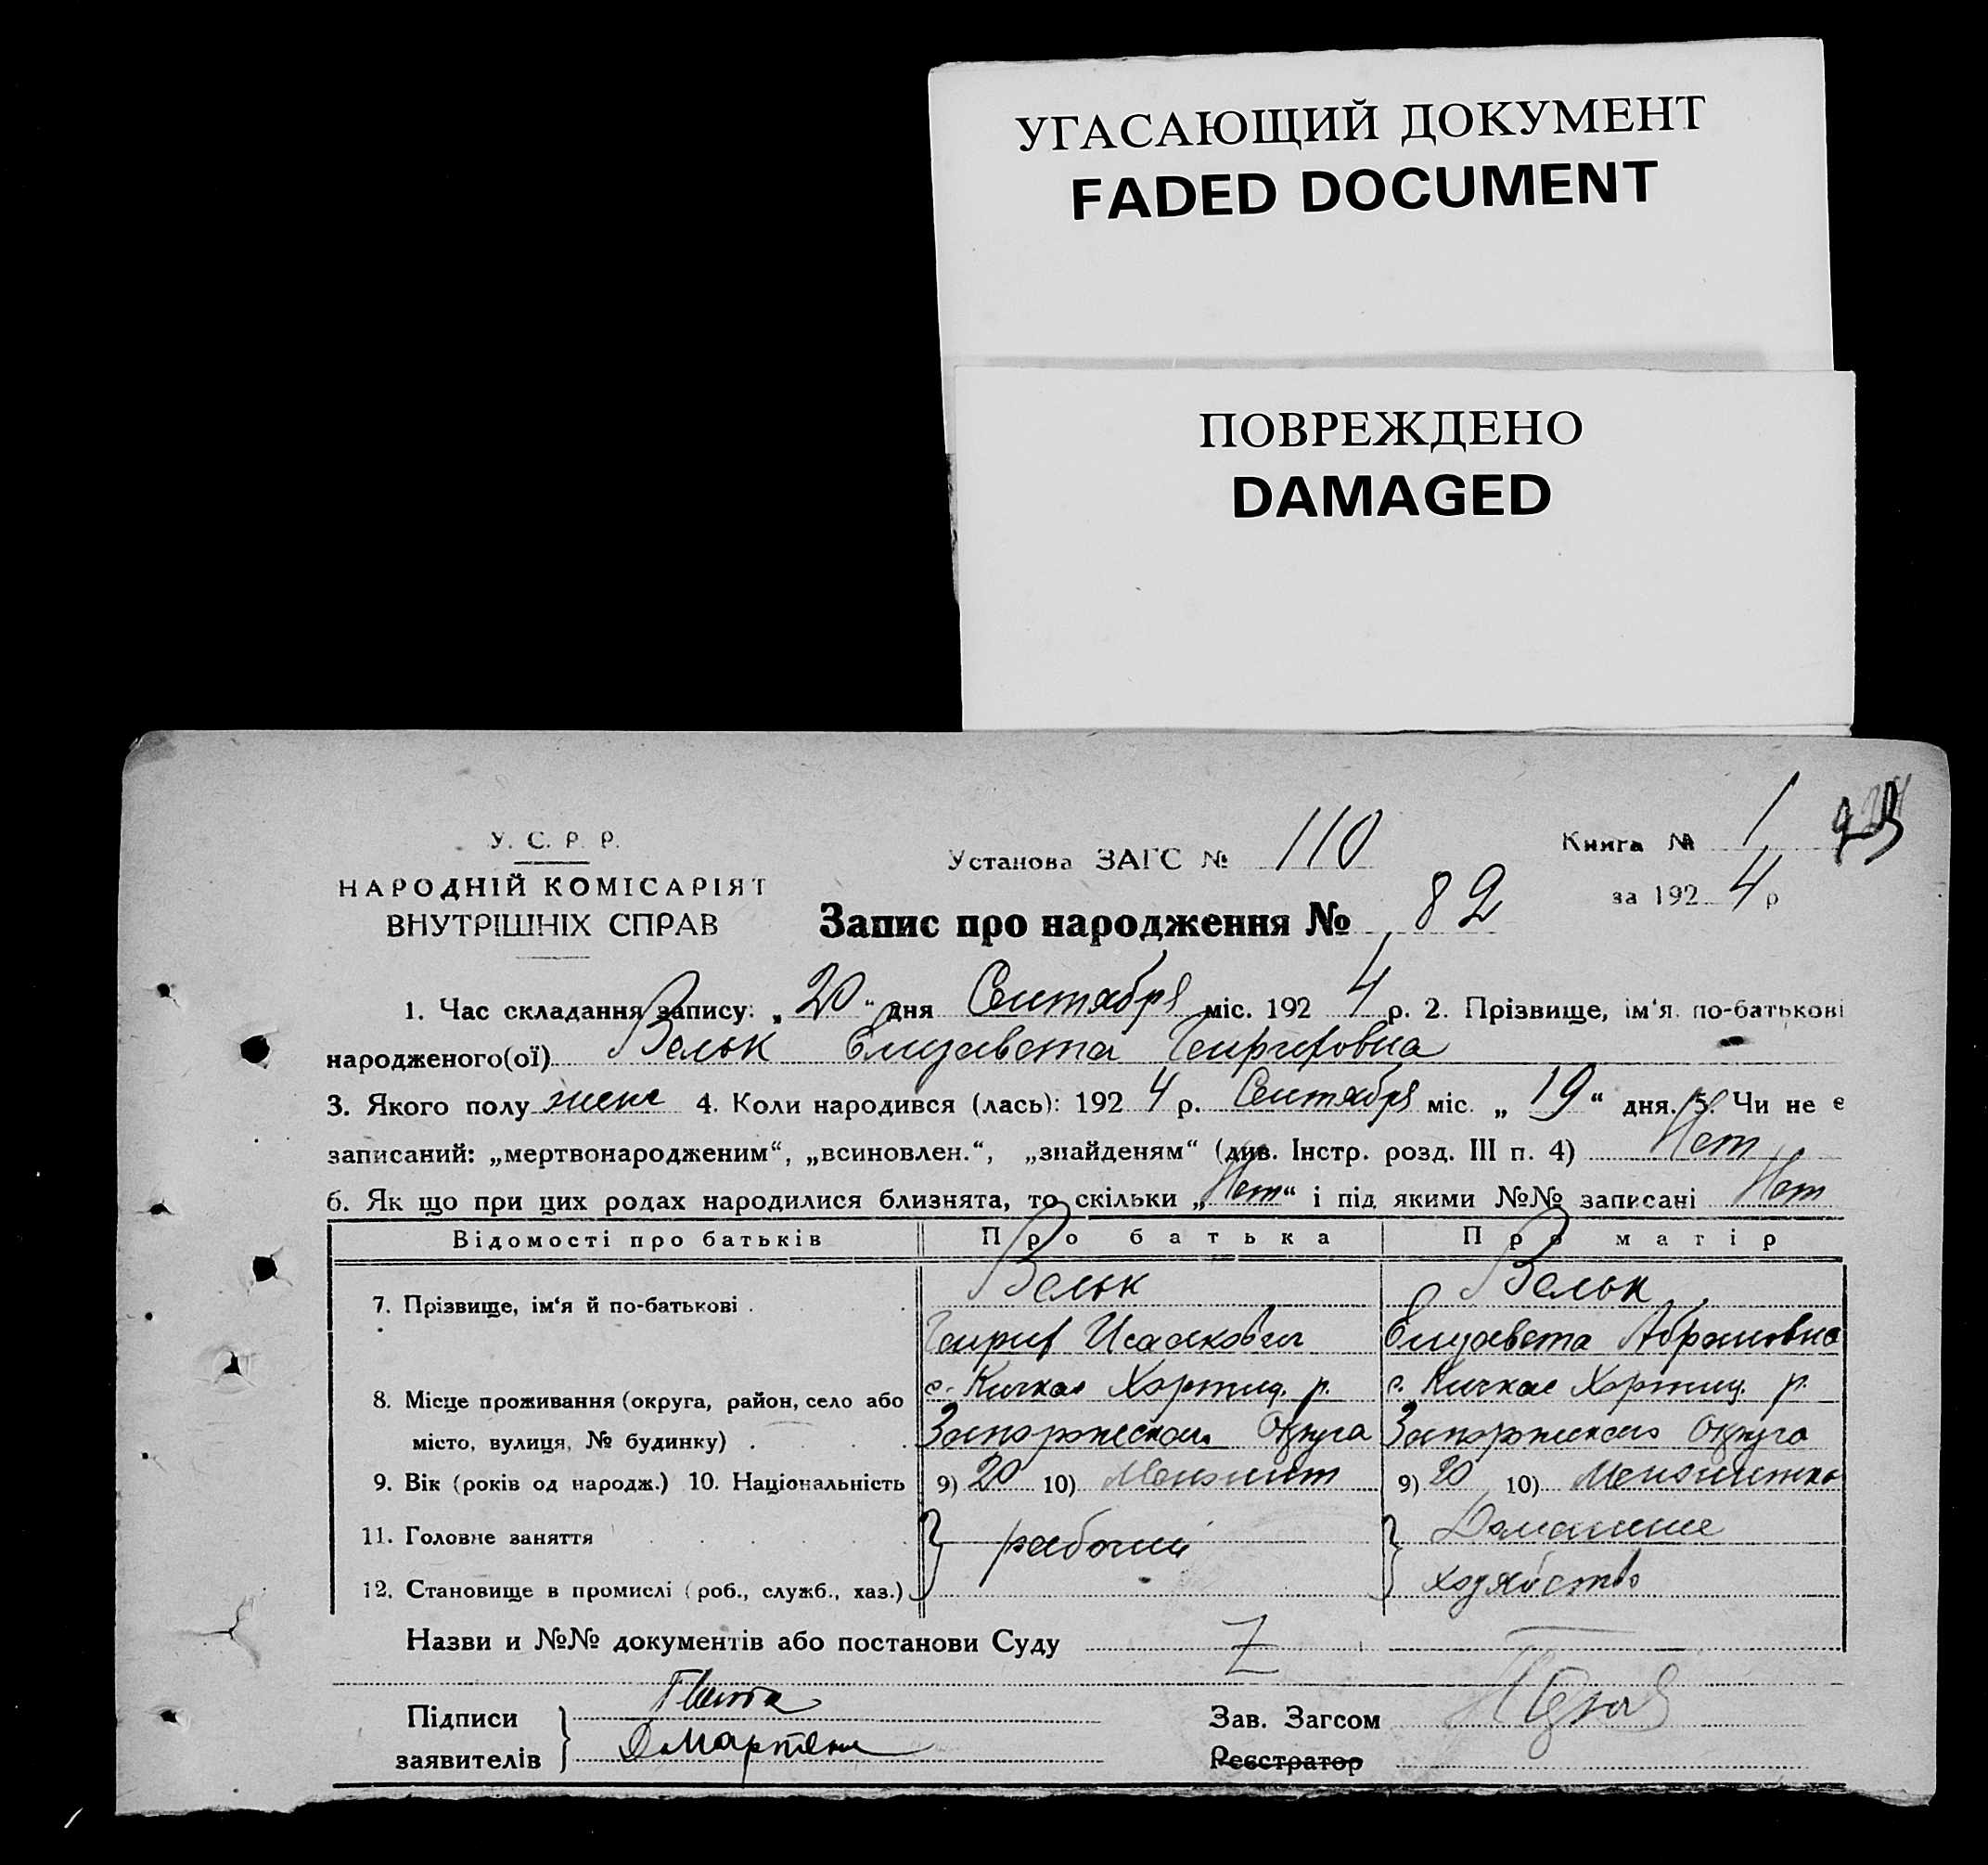 УГАСАЮЩИЙ ДОКУМЕНТ
FADED DOCUMENT
ПОВРЕЖДЕНО
DAMAGED
У. С. Р. Р.
НАРОДНІЙ КОМІСАРІЯТ
ВНУТРІШНІХ СПРАВ
Установа ЗАГС № 110
Книга № 1
за 1924 р
Запис про народження № 82
1. Час складання запису: „20" дня Сентября міс. 1924 р. 2. Прізвище, ім'я по-батькові
народженого(ої) Вельк Елизавета Генриховна
3. Якого полу женс 4. Коли народився (лась): 1924 р. Сентября міс. „19" дня. 5. Чи не є
записаний: „мертвонародженим", „всиновлен.", „знайденям" (див. Інстр. розд. III п. 4) Нет
6. Як що при цих родах народилися близнята, то скільки „Нет" і під якими №№ записані Нет
Відомості про батьків Про батька Про матір
7. Прізвище, ім'я й по-батькові . Вельк Вельк
Генрих Исаакович Елизавета Абрамовна
8. Місце проживання (округа, район, село або с. Кичкас Хортиц. р. с. Кичкас Хортиц. р.
місто, вулиця, № будинку) . Запорожском Округа Запорожского Округа
9. Вік (років од народж.) 10. Національність 9) 20 10) Менонит 9) 20 10) Менонитка
11. Головне заняття рабочий Домашнее
12. Становище в промислі (роб., служб., хаз.) хозяйство
Назви и №№ документів або постанови Суду
Підписи
заявителів
Д. Мартенс
Зав. Загсом
Реєстратор